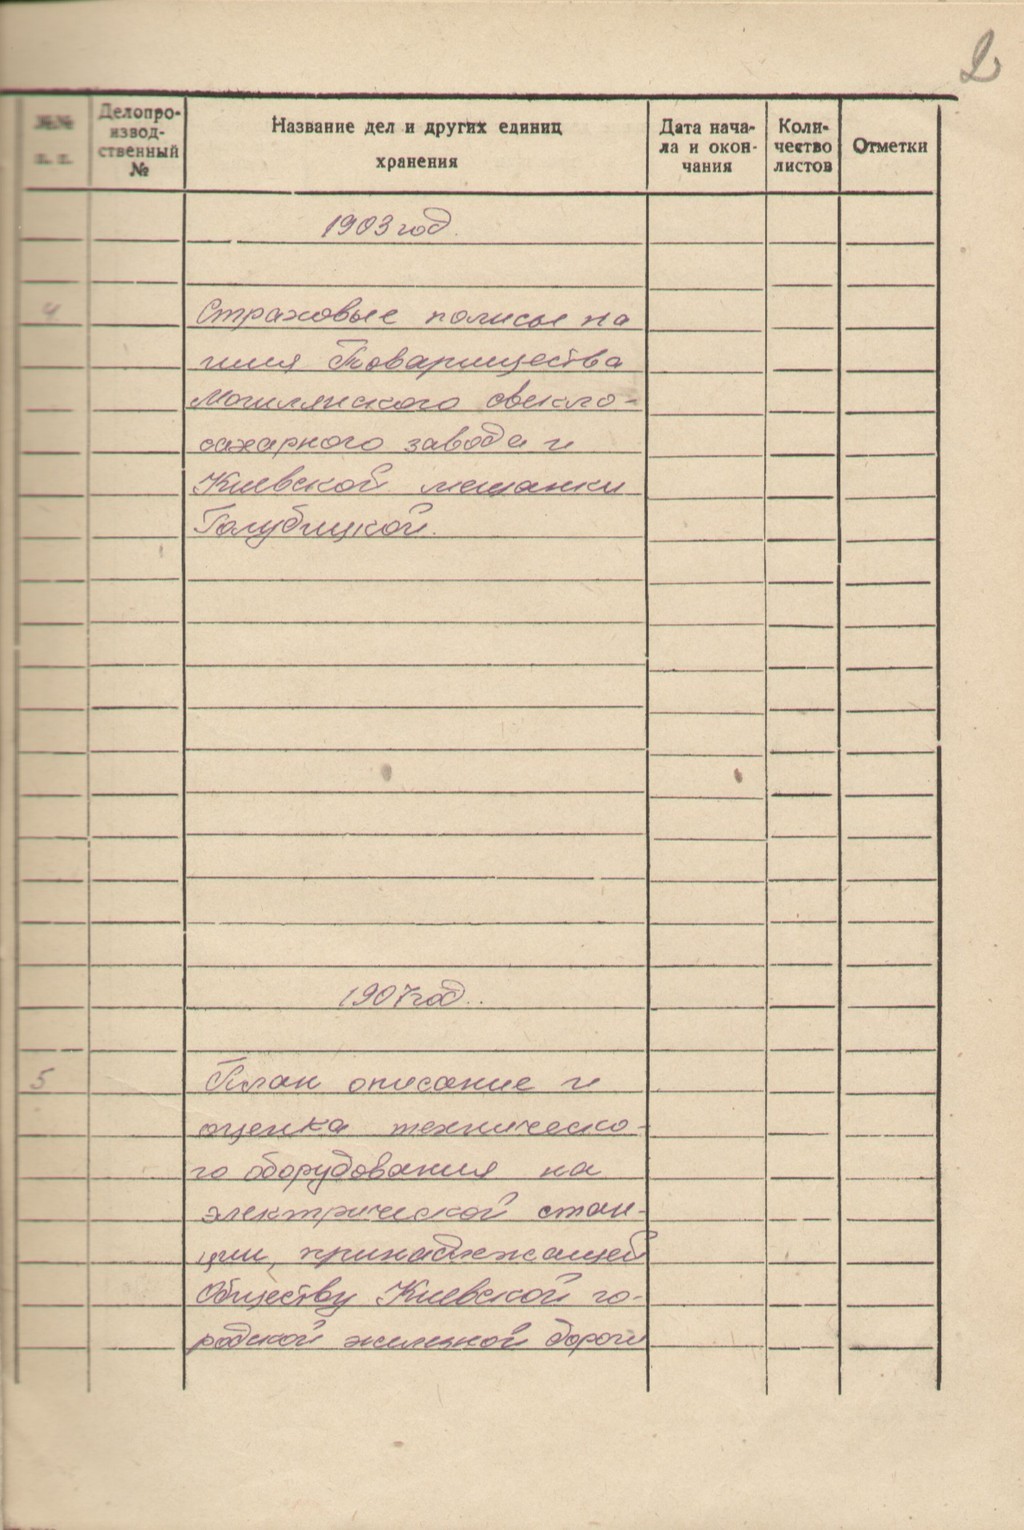 2
№№
п. п.
Делопро-
извод-
ственный
№
Название дел и других единиц
хранения
Дата нача-
ла и окон-
чания
Коли-
чество
листов
Отметки
1903 год.
4
Страховые полисы на
имя Товарищества
Могилянского свекло-
сахарного завода и
Киевской мещанки
Голубицкой.
1907 год.
5
План описание и
оценка техническо-
го оборудования на
электрической стан-
ции, принадлежащей
Обществу Киевской го-
родской железной дороги